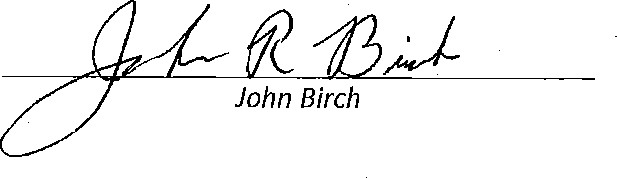 John R Birch
John Birch